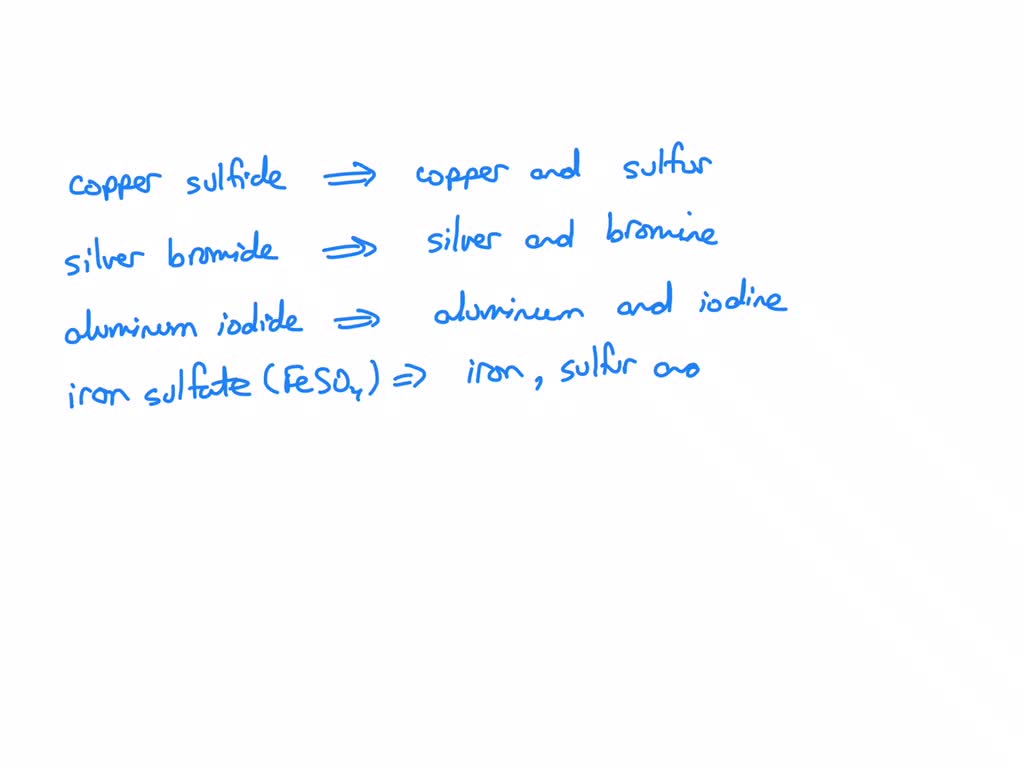 copper sulfide ⇒ copper and sulfur
silver bromide ⇒ silver and bromine
aluminum iodide ⇒ aluminum and iodine
iron sulfate (FeSO₄) ⇒ iron, sulfur